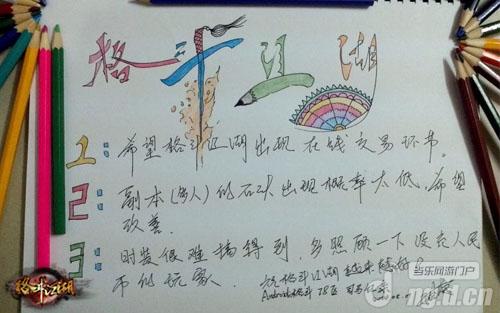 格斗江湖
1: 希望格斗江湖出现在线交易环节。
2: 副本(多人)的石头出现概率太低,希望
改善.
3: 时装很难搞得到,多照顾一下没花人民
币的玩家.
祝格斗江湖越来越好!
Android格斗 78区
格斗江湖
当乐网游门户
ng.d.cn